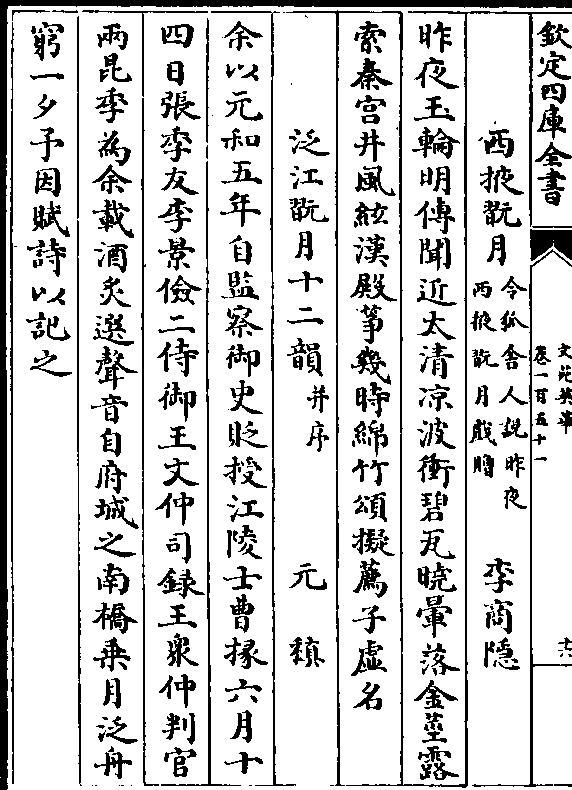 欽定四庫全書
文苑英華
卷一百五十一
十六
西掖翫月
令狐舍人說昨夜
西掖翫月戲贈
李商隱
昨夜玉輪明傳聞近太清凉波衝碧瓦曉暈落金莖露
索秦宫井風絃漢殿筝幾時綿竹頌擬薦子虚名
泛江翫月十二韻
并序
元稹
余以元和五年自監察御史貶授江陵士曹掾六月十
四日張季友李景儉二侍御王文仲司録王衆仲判官
兩昆季為余載酒炙選聲音自府城之南橋乗月泛舟
窮一夕予因賦詩以記之